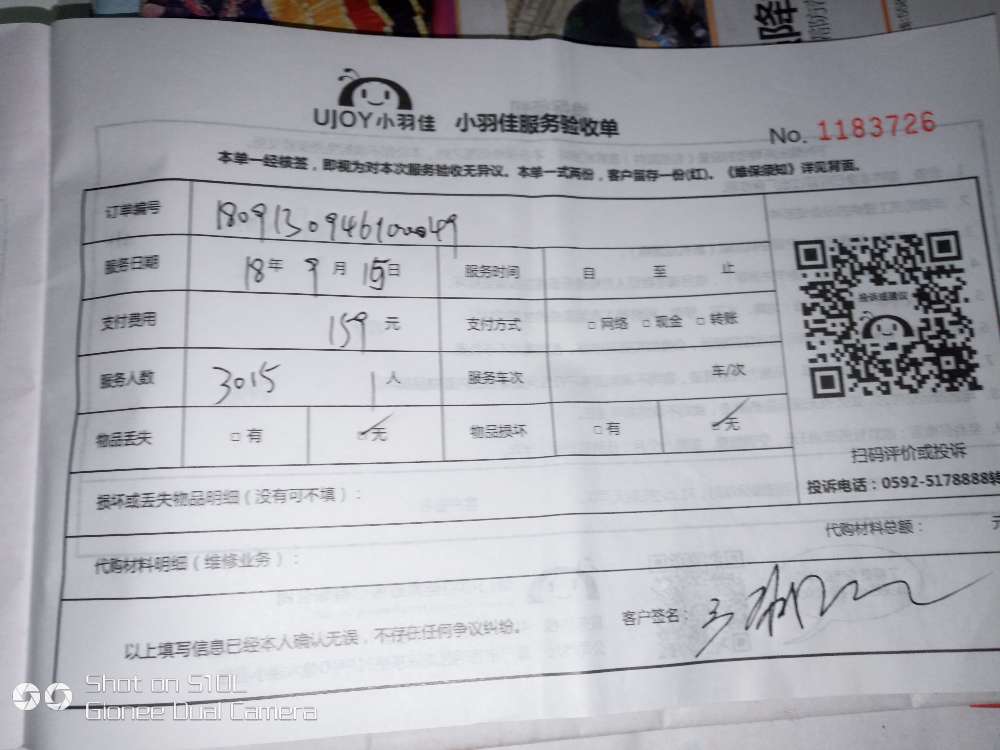 降
UJOY小羽佳 小羽佳服务验收单
No. 1183726
本单一经核签，即视为对本次服务验收无异议。本单一式两份，客户留存一份(红)。《维保须知》详见背面。
订单编号
服务日期 18年 9月 15日 服务时间 自 至 止
支付费用 159 元 支付方式 □网络 □现金 □转账
服务人数 3015 1人 服务车次 车/次
物品丢失 □有 ☑无 物品损坏 □有 ☑无
投诉或建议
扫码评价或投诉
投诉电话：0592-5178888转
损坏或丢失物品明细（没有可不填）：
代购材料明细（维修业务）： 代购材料总额： 元
以上填写信息已经本人确认无误，不存在任何争议纠纷。 客户签名：
Shot on S10L
Gionee Dual Camera